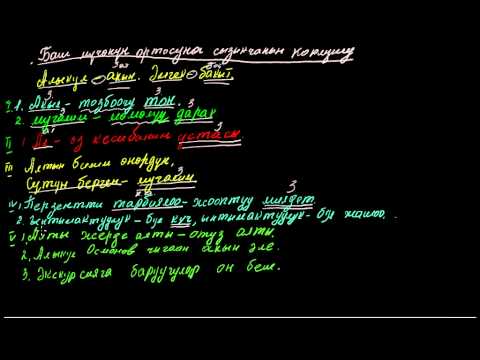 Баш мүчөнүн ортосуна сызыкчанын коюлушу
Зат Зат
Алыкул – акын. Эмгек – бакыт.
З З
I. 1. Акыл – тозбогу тон.
2. мугалим – мөмөлүү дарак
II 1. Ал – өз кесибинин устасы
III Алтын башы өнөрдүк,
Сүтүн берген – мугалим
IV 1. Перзентти тарбиялоо – жооптуу милдет
2. Ынтымактуулук – бул күч, ынтымактуулук – бул жашоо.
V 1. Алты жерде алты – отуз алты.
2. Алыкул Осмонов чыгаан акын эле.
3. Экскурсияга баруучулар он беш.